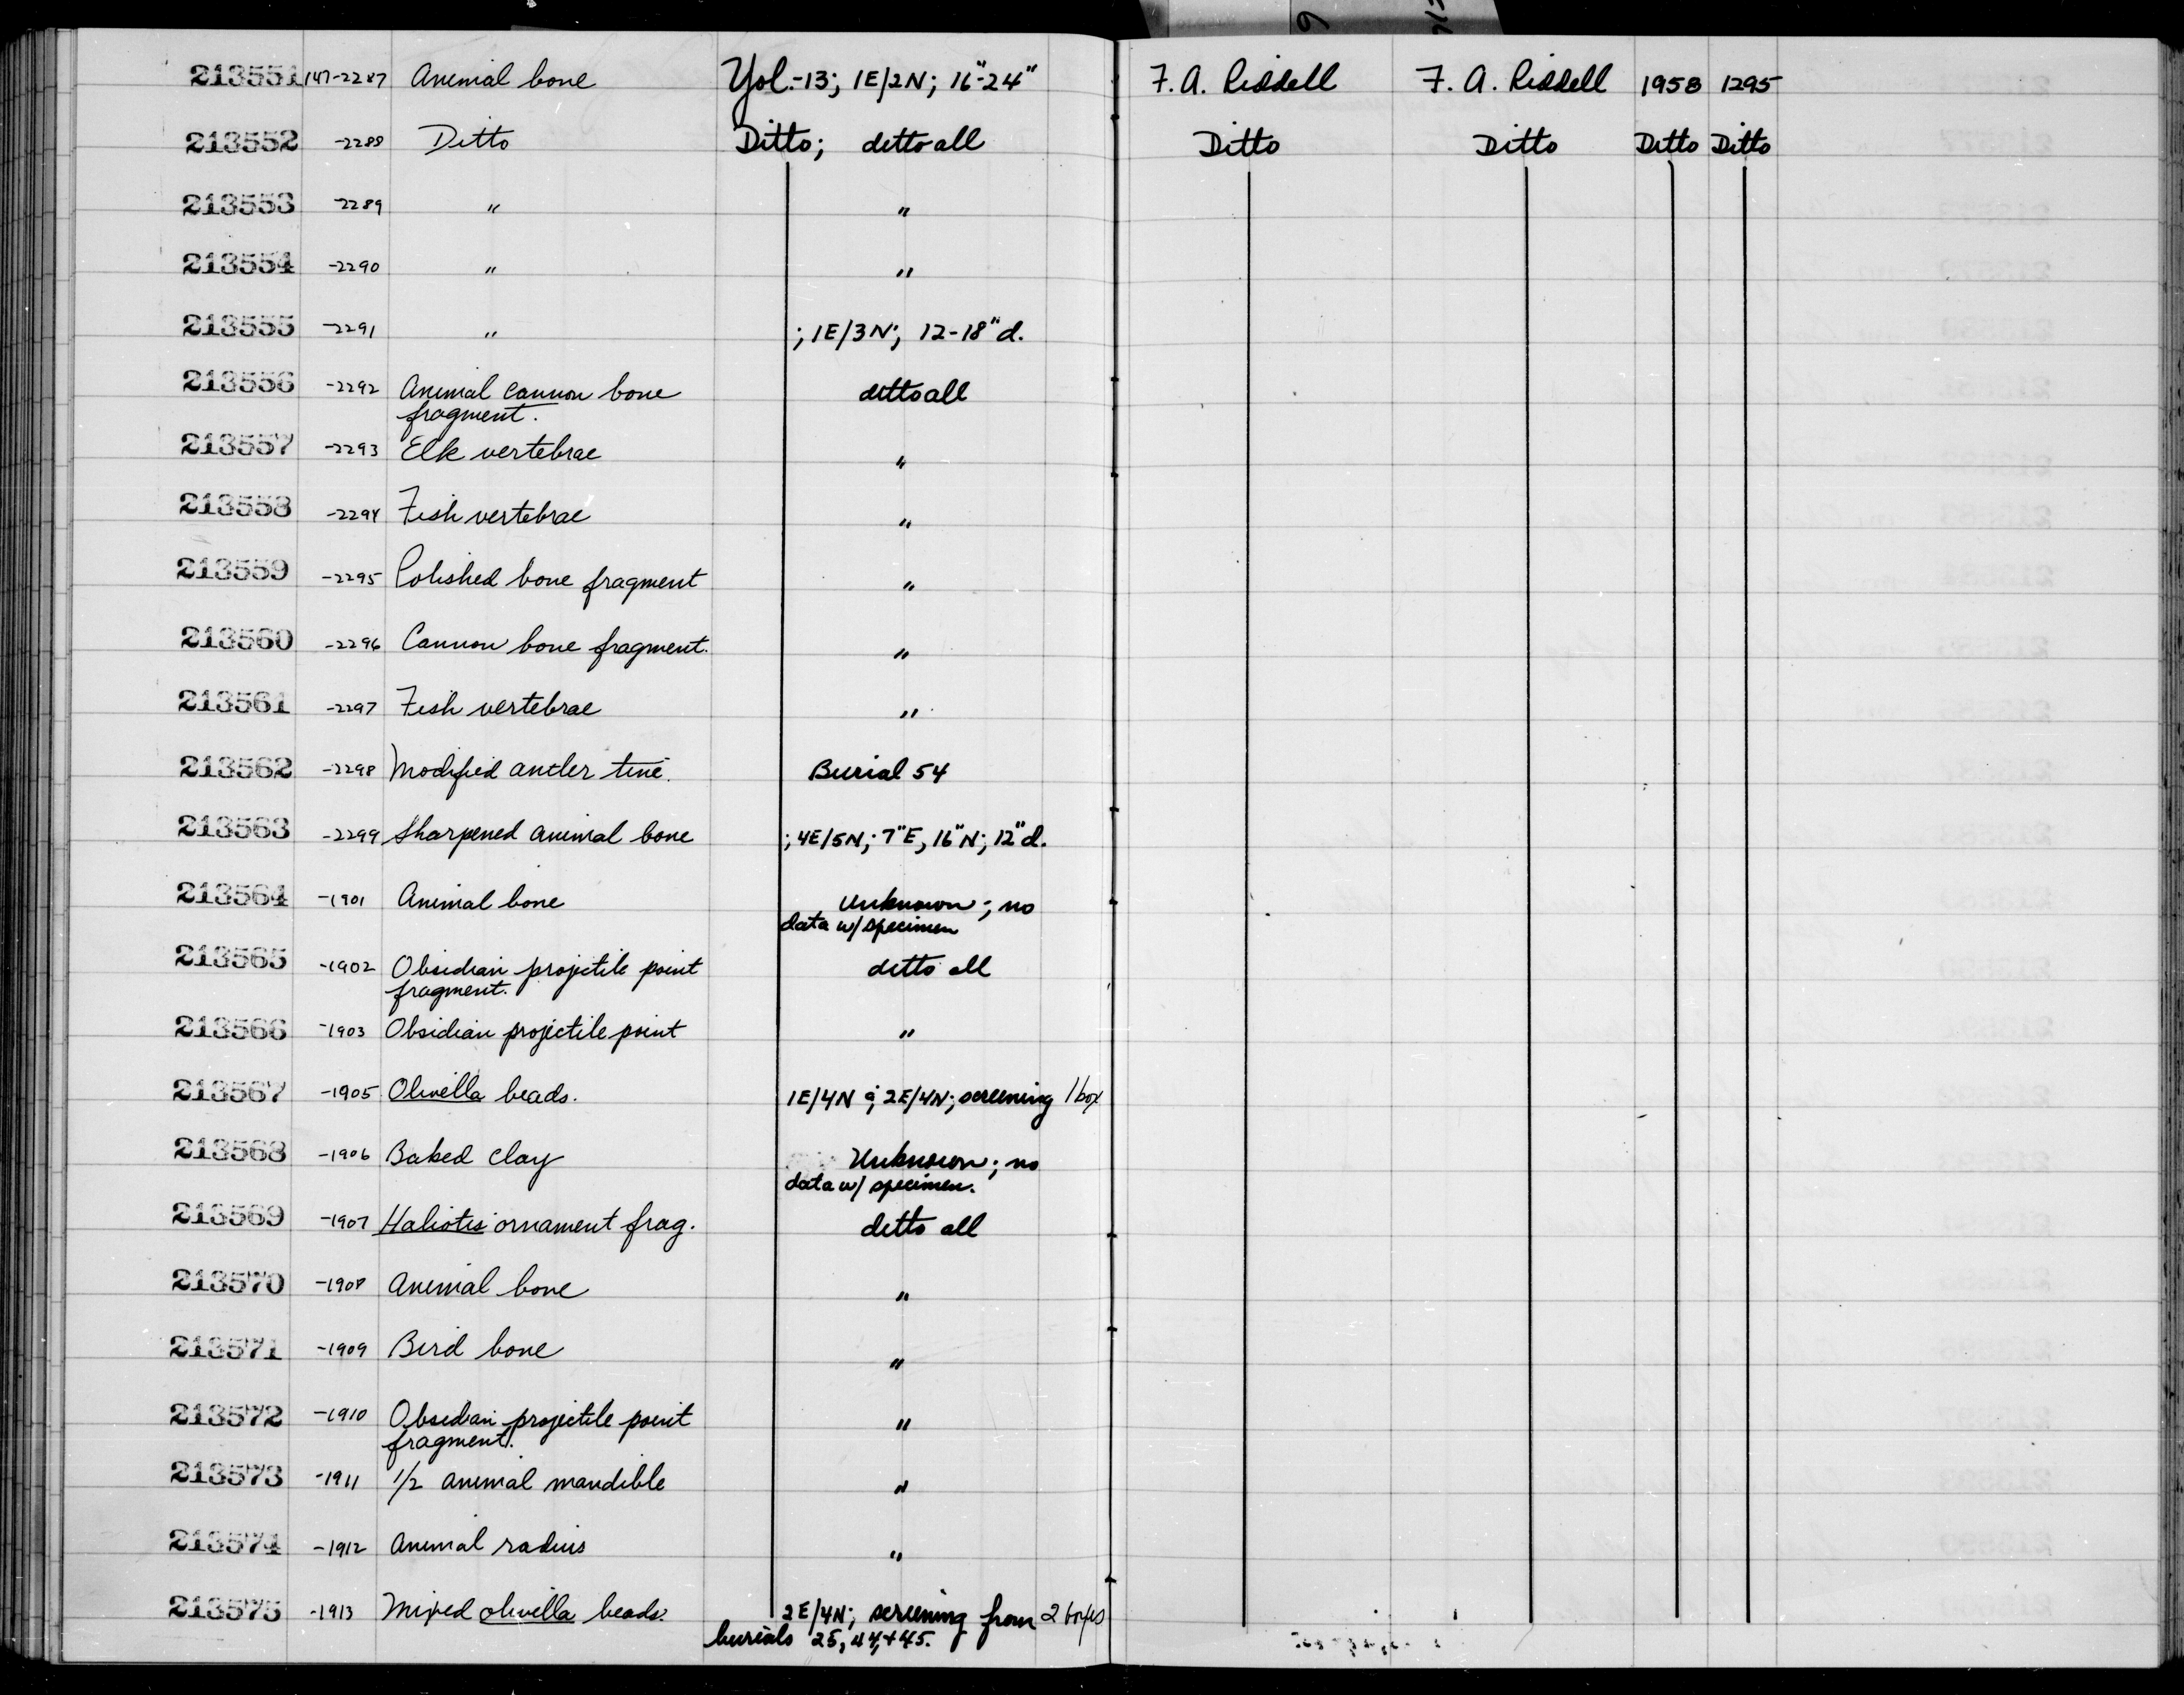 213551 147-2287 Animal bone Yol.-13; 1E/2N; 16"-24" F. A. Riddell F. A. Riddell 1958 1295
213552 -2288 Ditto Ditto; ditto all Ditto Ditto Ditto Ditto
213553 -2289 " "
213554 -2290 " "
213555 -2291 " ; 1E/3N; 12-18" d.
213556 -2292 Animal cannon bone ditto all
fragment.
213557 -2293 Elk vertebrae "
213558 -2294 Fish vertebrae "
213559 -2295 Polished bone fragment "
213560 -2296 Cannon bone fragment. "
213561 -2297 Fish vertebrae "
213562 -2298 Modified antler tine. Burial 54
213563 -2299 Sharpened animal bone ; 4E/5N; 7"E, 16"N; 12"d.
213564 -1901 Animal bone Unknown; no
data w/ specimen
213565 -1902 Obsidian projectile point ditto all
fragment.
213566 -1903 Obsidian projectile point "
213567 -1905 Olivella beads. 1E/4N; 2E/4N; screening 1 box
213568 -1906 Baked clay Unknown; no
data w/ specimen.
213569 -1907 Haliotis ornament frag. ditto all
213570 -1908 Animal bone "
213571 -1909 Bird bone "
213572 -1910 Obsidian projectile point "
fragment.
213573 -1911 1/2 animal mandible "
213574 -1912 Animal radius "
213575 -1913 Mixed olivella beads. 2E/4N; screening from 2 boxes
burials 25, 44, + 45.